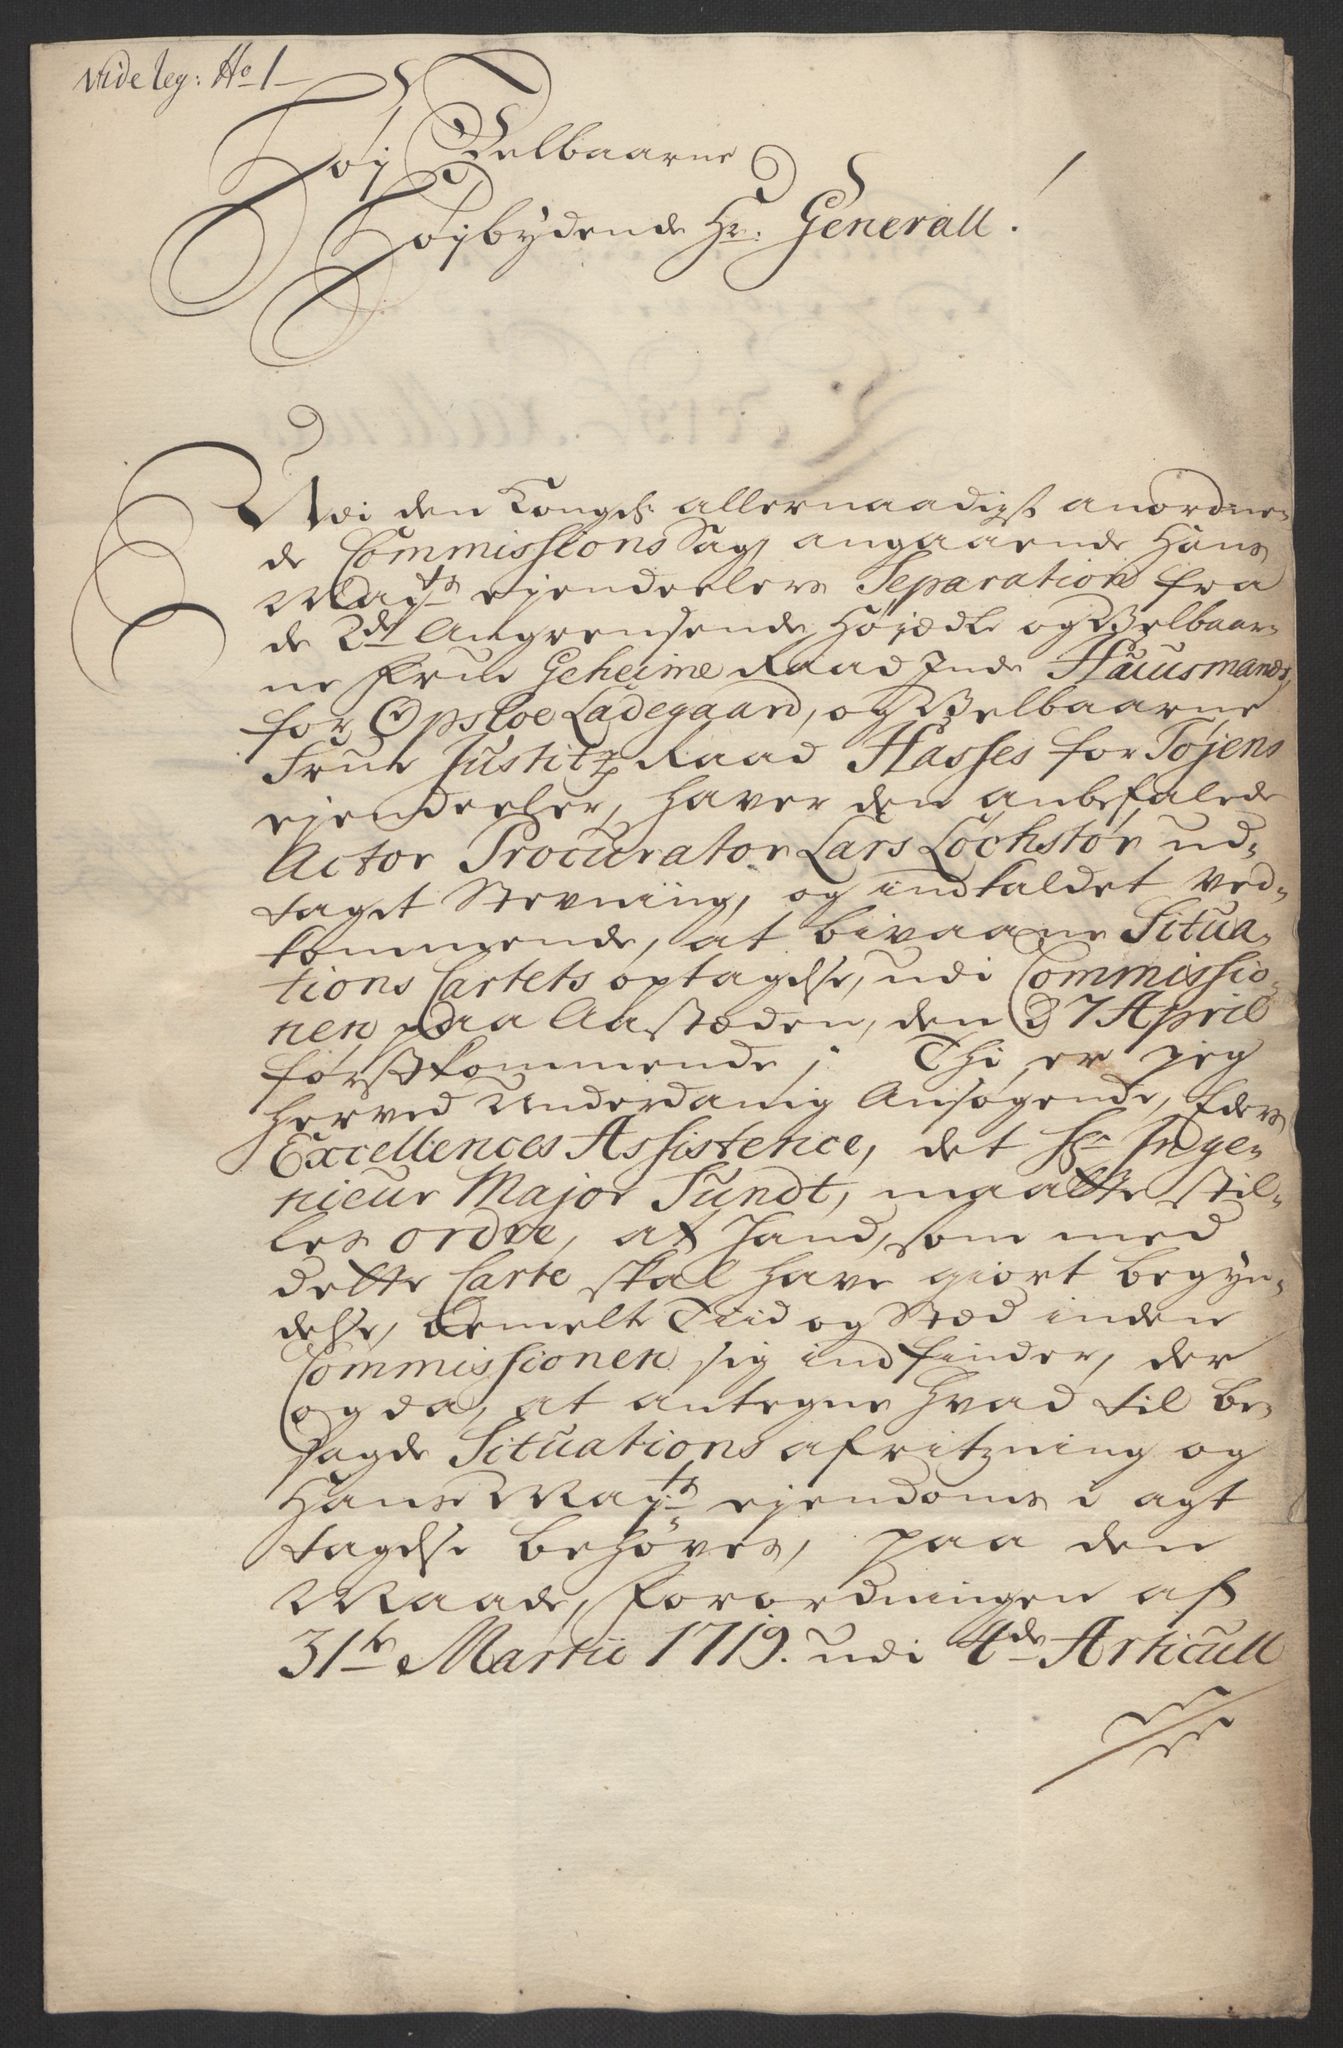 Vide leg: No 1
Høj Velbaarne
Højbydende Hr. Generall!
Udi den Kongel: allernaadigst anordne-
de Commissions Sag, angaaende Hans
Mayts ejendeelers Separation fra
de 2de Angrensende, Højædle og Velbaar-
ne Frue Geheime Raadinde Hausmands,
for Opsloe Ladegaard, og Velbaarne
Frue Justitz Raad Hasses for Tøjens
ejendeeler, haver den anbefalede
Actor Procurator Lars Lochstør ud-
taget Stevning, og indkaldet ved-
kommende, at bivaane Situa-
tions Cartets optagelse, udi Commissio-
nen paa Aastæden, den 7 April
førstkommende; Thi er jeg
herved Underdanig Ansøgende, Eders
Excellences Assistence, det Hr Inge-
nieur Major Sundt, maatte stil-
les ordre, at hand, som med
dette Carte skal have giort begyn-
delse, bemelte Tiid og Stæd inden
Commissionen sig indfinder, der
og da, at antegne hvad til be-
sagde Situations afritzning og
Hans Mayts ejendoms i agt
tagelse behøves, paa den
Maade, Forordningen af
31te Martii 1719. udi 4de Articull